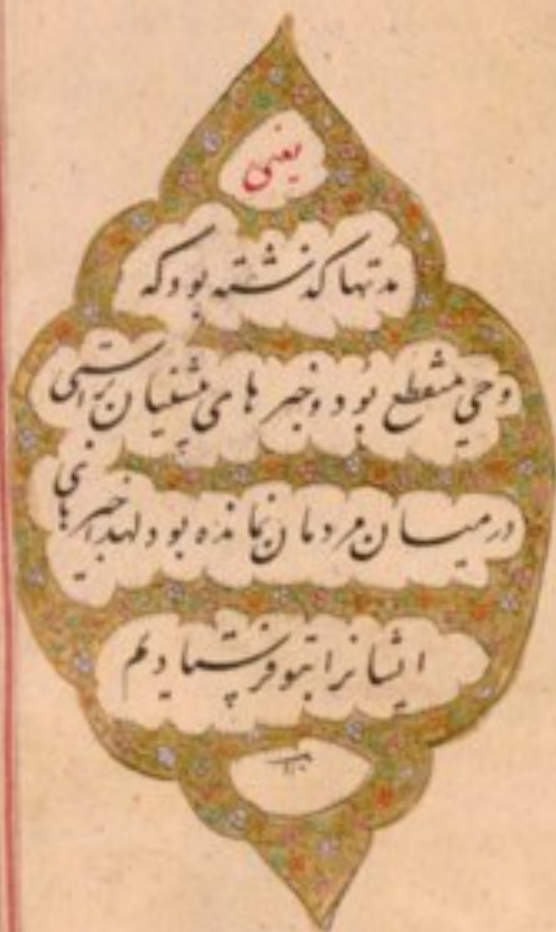 یعنی
مدتها کذشته بود که
وحی منقطع بود و خبر های پیشنیان براستی
در میان مردمان نمانده بود لهذا خبرهای
ایشانرا بتو فرستادیم